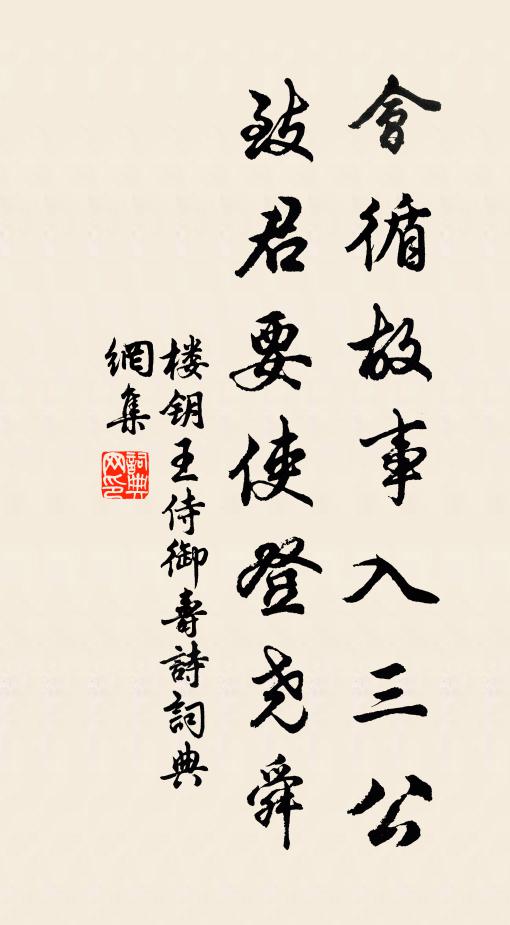 會循故事入三公
致君要使登尧舜
楼钥王侍御壽詩詞典
網集
詞典网印